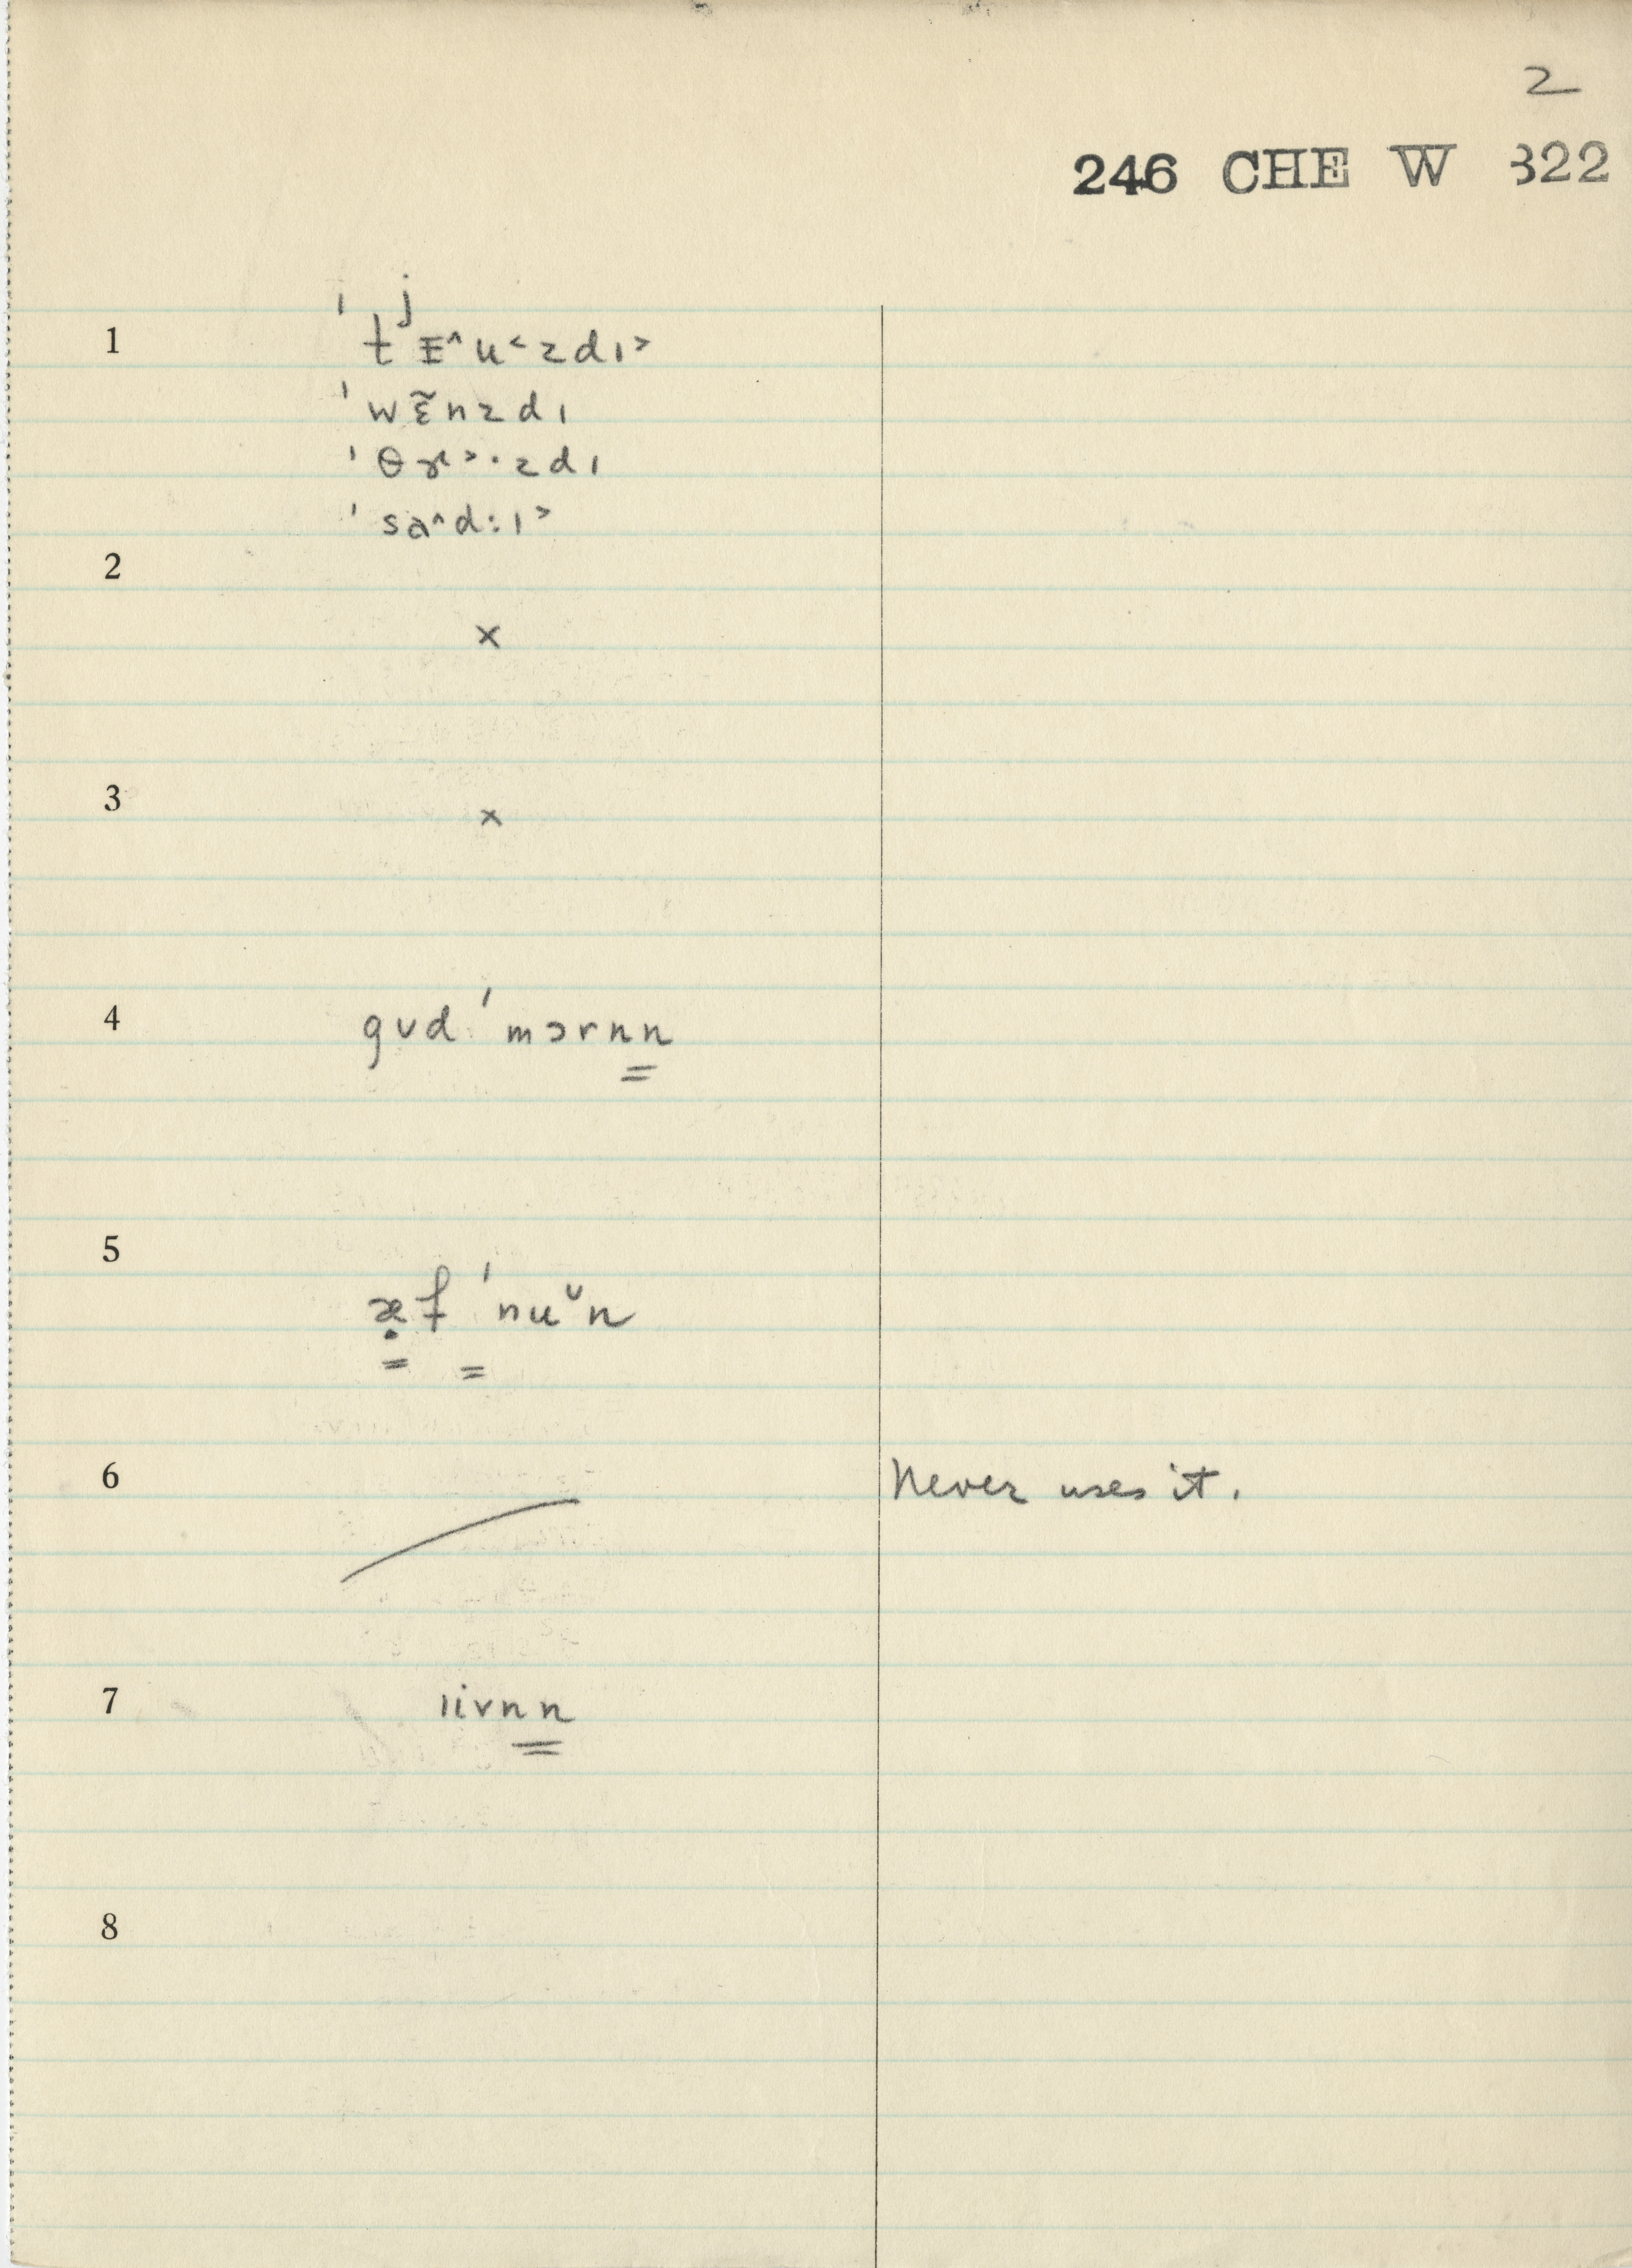 2
246 CHE W 322
1 ˈtʲᴇ^u<zdɪ>
ˈwɛ̃nzdɪ
ˈθɝ>·zdɪ
ˈsa^d:ɪ>
2
×
3
×
4 gʊd ˈmɔrnn
5
æ̣f ˈnuᵕn
6 Never uses it.
7 ɪivnn
8